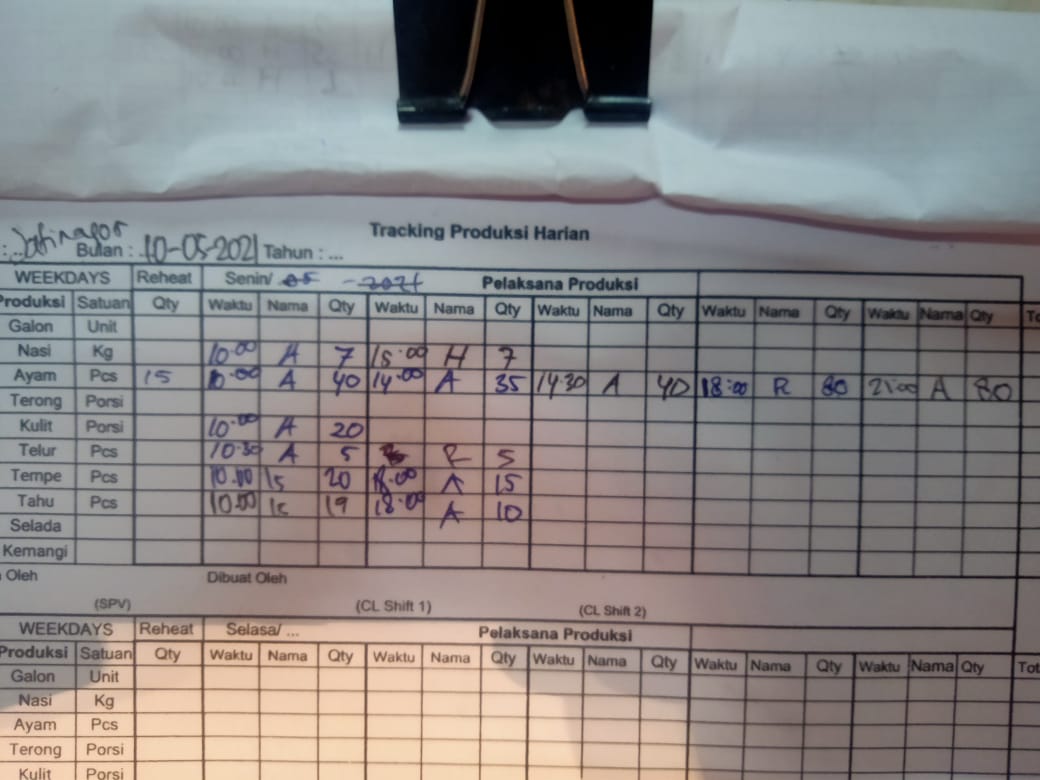 Tracking Produksi Harian
: Jatinagor Bulan : 10-05-2021 Tahun : ...
WEEKDAYS Reheat Senin/ 05 -2021 Pelaksana Produksi
Produksi Satuan Qty Waktu Nama Qty Waktu Nama Qty Waktu Nama Qty Waktu Nama Qty Waktu Nama Qty
Galon Unit
Nasi Kg 10.00 A 7 15.00 H 7
Ayam Pcs 15 10.00 A 40 14.00 A 35 14.30 A 40 18:00 R 80 21:00 A 80
Terong Porsi
Kulit Porsi 10.00 A 20
Telur Pcs 10.30 A 5 R 5
Tempe Pcs 10.00 Is 20 18.00 A 15
Tahu Pcs 10.00 Is 19 18:00 A 10
Selada
Kemangi
Oleh Dibuat Oleh
(SPV) (CL Shift 1) (CL Shift 2)
WEEKDAYS Reheat Selasa/ ... Pelaksana Produksi
Produksi Satuan Qty Waktu Nama Qty Waktu Nama Qty Waktu Nama Qty Waktu Nama Qty Waktu Nama Qty Tot
Galon Unit
Nasi Kg
Ayam Pcs
Terong Porsi
Kulit Porsi